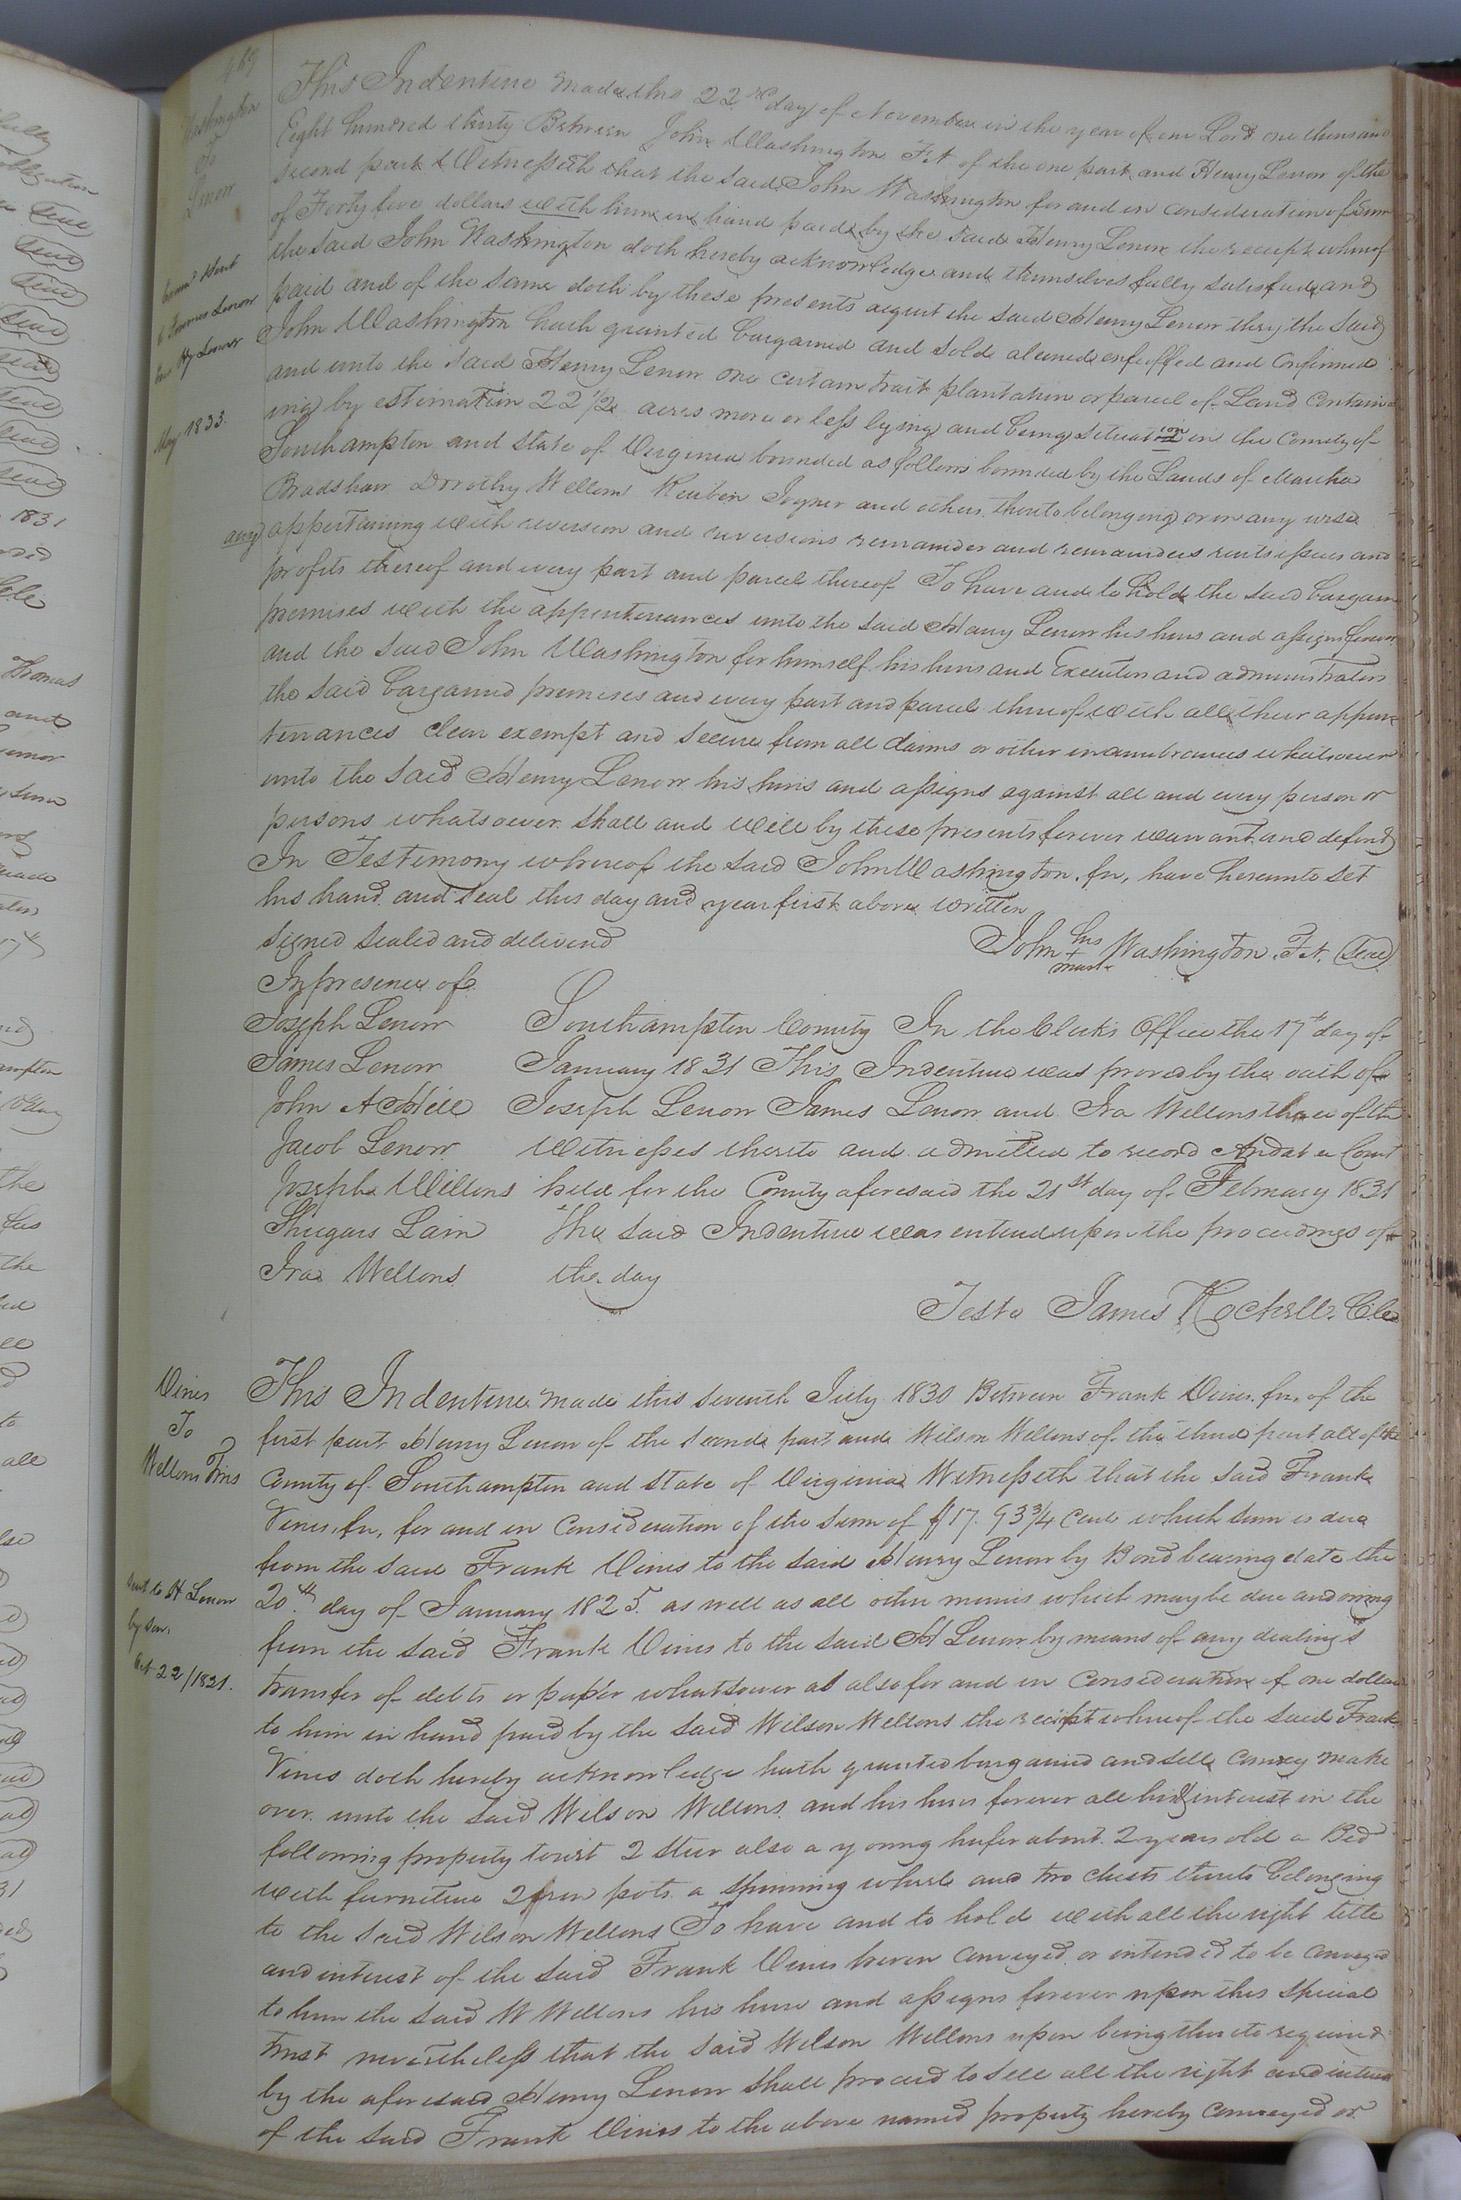 469
Washington
To
Lenow
Exam.d & sent
to James Lenow
for Hy Lenow
May 1833.
This Indenture made this 22nd day of November in the year of our Lord one thousand
Eight hundred thirty Between John Washington F.N. of the one part and Henry Lenow of the
second part Witnesseth that the said John Washington for and in consideration of Sum
of Forty five dollars with him in hand paid by the said Henry Lenow the receipt whereof
the said John Washington doth hereby acknowledge and themselves fully satisfied and
paid and of the same doth by these presents acquit the said Henry Lenow they the said
John Washington hath granted bargained and sold aliened enfeoffed and Confirmed
and unto the said Henry Lenow one certain trait plantation or parcel of Land Contain
ing by estimation 22 1/2 acres more or less lying and being situation in the County of
Southampton and State of Virginia bounded as follows bounded by the Lands of Martha
Bradshaw Dorothy Wellons Reuben Joyner and others thereto belonging or in any wise
any appertaining with reversion and reversions remainder and remainders rents issues and
profits thereof and every part and parcel thereof To have and to hold the said bargain
premises with the appurtenances unto the said Henry Lenow his heirs and assigns forever
and the said John Washington for himself his heirs and Executors and administrators
the said bargained premises and every part and parcel thereof with all their appur
tenances clear exempt and secure from all claims or other incumbrances whatsoever
unto the said Henry Lenow his heirs and assigns against all and every person or
persons whatsoever shall and will by these presents forever warrant and defend
In Testimony whereof the said John Washington, fn, have hereunto set
his hand and seal this day and year first above written
signed sealed and delivered
John his + mark Washington. F.N. (Seal)
In presence of
Joseph Lenow
James Lenow
John A Hill
Jacob Lenow
Joseph Wellons
Shugars Lain
Ira Wellons
Southampton County In the Clerk's Office the 17th day of
January 1831 This Indenture was proved by the oath of
Joseph Lenow James Lenow and Ira Wellons three of the
witnesses thereto and admitted to record And at a Court
held for the County aforesaid the 21st day of February 1831
The said Indenture was entered upon the proceedings of
the day
Teste James Rochelle. Clk
Vines
To
Wellons Trus
Sent to H Lenow
by son.
Oct 22/1831.
This Indenture made this seventh July 1830 Between Frank Vines. fn. of the
first part Henry Lenow of the second part and Wilson Wellons of the third part all of the
County of Southampton and state of Virginia Witnesseth that the said Frank
Vines, fn, for and in consideration of the sum of $17. 93 3/4 Cent which sum is due
from the said Frank Vines to the said Henry Lenow by Bond bearing date the
20.th day of January 1825. as well as all other monies which may be due and owing
from the said Frank Vines to the said H Lenow by means of any dealings
transfer of debts or paper whatsoever as also for and in consideration of one dollar
to him in hand paid by the said Wilson Wellons the receipt whereof the said Frank
Vines doth hereby acknowledge hath granted bargained and sell Convey make
over unto the said Wilson Wellons and his heirs forever all his interest in the
following property towit 2 steer also a young heifer about 2 years old a Bed
with furniture 2 Iron pots a Spinning wheel and two chests thereto belonging
to the said Wilson Wellons To have and to hold with all the right title
and interest of the said Frank Vines herein conveyed or intended to be conveyed
to him the said W Wellons his heirs and assigns forever upon this special
trust nevertheless that the said Wilson Wellons upon being thereto required
by the aforesaid Henry Lenow shall proceed to sell all the right and interest
of the said Frank Vines to the above named property hereby conveyed or